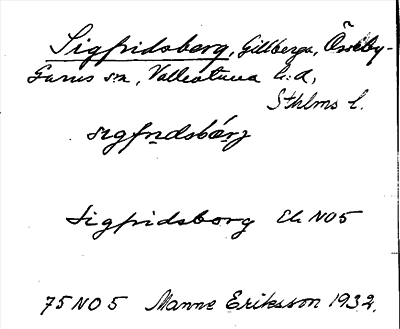 Sigfridsborg, Gillberga, Össeby-
Garns sn, Vallentuna h:d,
Sthlms l.
sigfridsbórj
Sigfridsborg Ek NO5
75 NO 5 Manne Eriksson 1932.